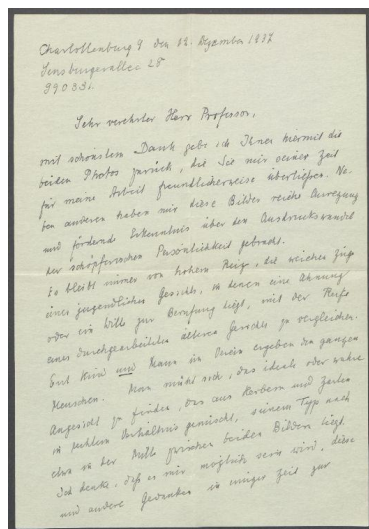 Charlottenburg 9 den 12. Dezember 1937
Sensburgerallee 28
990331.
Sehr verehrter Herr Professor,
mit schönstem Dank gebe ich Ihnen hiermit die
beiden Photos zurück, die Sie mir seiner Zeit
für meine Arbeit freundlicherweise überließen. Ne-
ben anderen haben mir diese Bilder reiche Anregung
und fördernde Erkenntnis über den Ausdruckswandel
der schöpferischen Persönlichkeit gebracht.
Es bleibt immer von hohem Reiz, die weichen Züge
eines jugendlichen Gesichts, in denen eine Ahnung
oder ein Wille zur Berufung liegt, mit der Reife
eines durchgearbeiteten älteren Gesichts zu vergleichen.
Erst Kind und Mann im Verein ergeben den ganzen
Menschen. Man müht sich, das ideale oder wahre
Angesicht zu finden, das aus Herbem und Zartem
in rechtem Verhältnis gemischt, seinem Typ nach
etwa in der Mitte zwischen beiden Bildern liegt.
Ich denke, daß es mir möglich sein wird, diese
und andere Gedanken in einiger Zeit zur